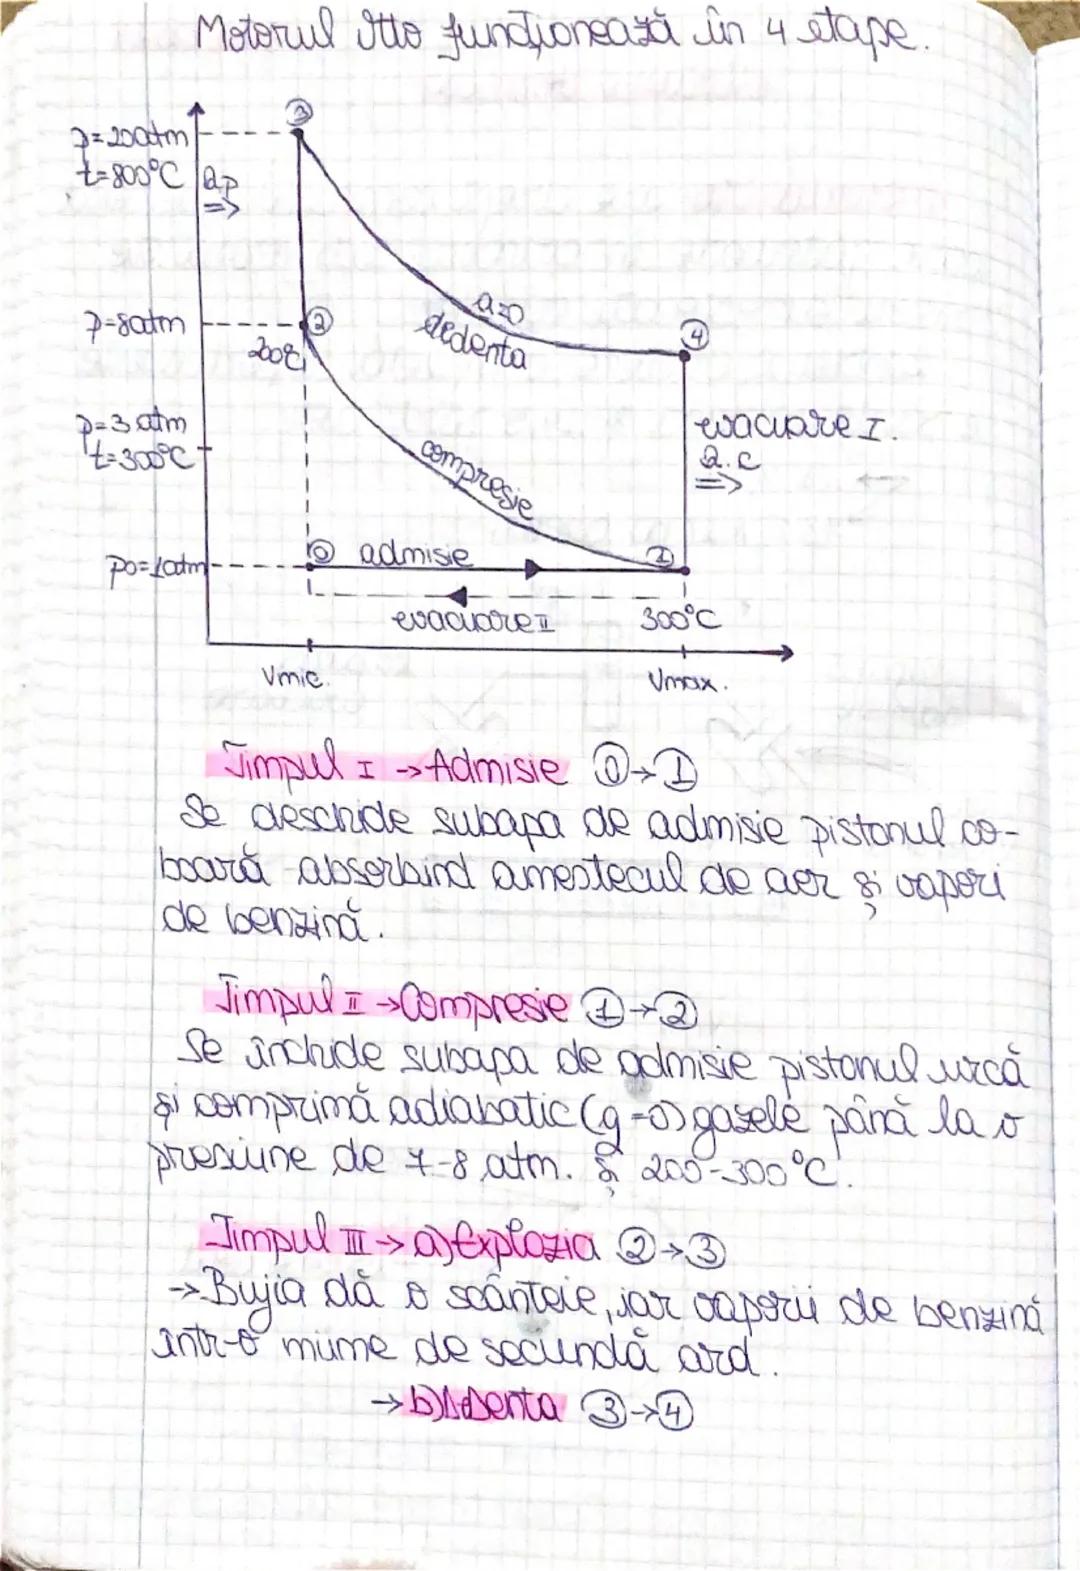 Motorul Otto funcționează în 4 etape.
p=20atm
t=800°C
Qp
⇒
③
p=8atm
②
200°C
Q=0
dedenta
④
p=3 atm
t=300°C
compresie
evacuare I.
Q.C
⇒
po=1atm
⓪ admisie
①
evacuare II
300°C
Vmic.
Vmax.
Timpul I → Admisie ⓪→①
Se deschide subapa de admisie pistonul co-
boară absorbind amestecul de aer și vapori
de benzină.
Timpul II → Compresie ①→②
Se închide subapa de admisie pistonul urcă
și comprimă adiabatic (q=0) gazele până la o
presiune de 7-8 atm. și 200-300°C.
Timpul III → a) Explozia ②→③
→ Bujia dă o scânteie, iar vaporii de benzină
într-o miime de secundă ard.
→ b) Dedenta ③→④